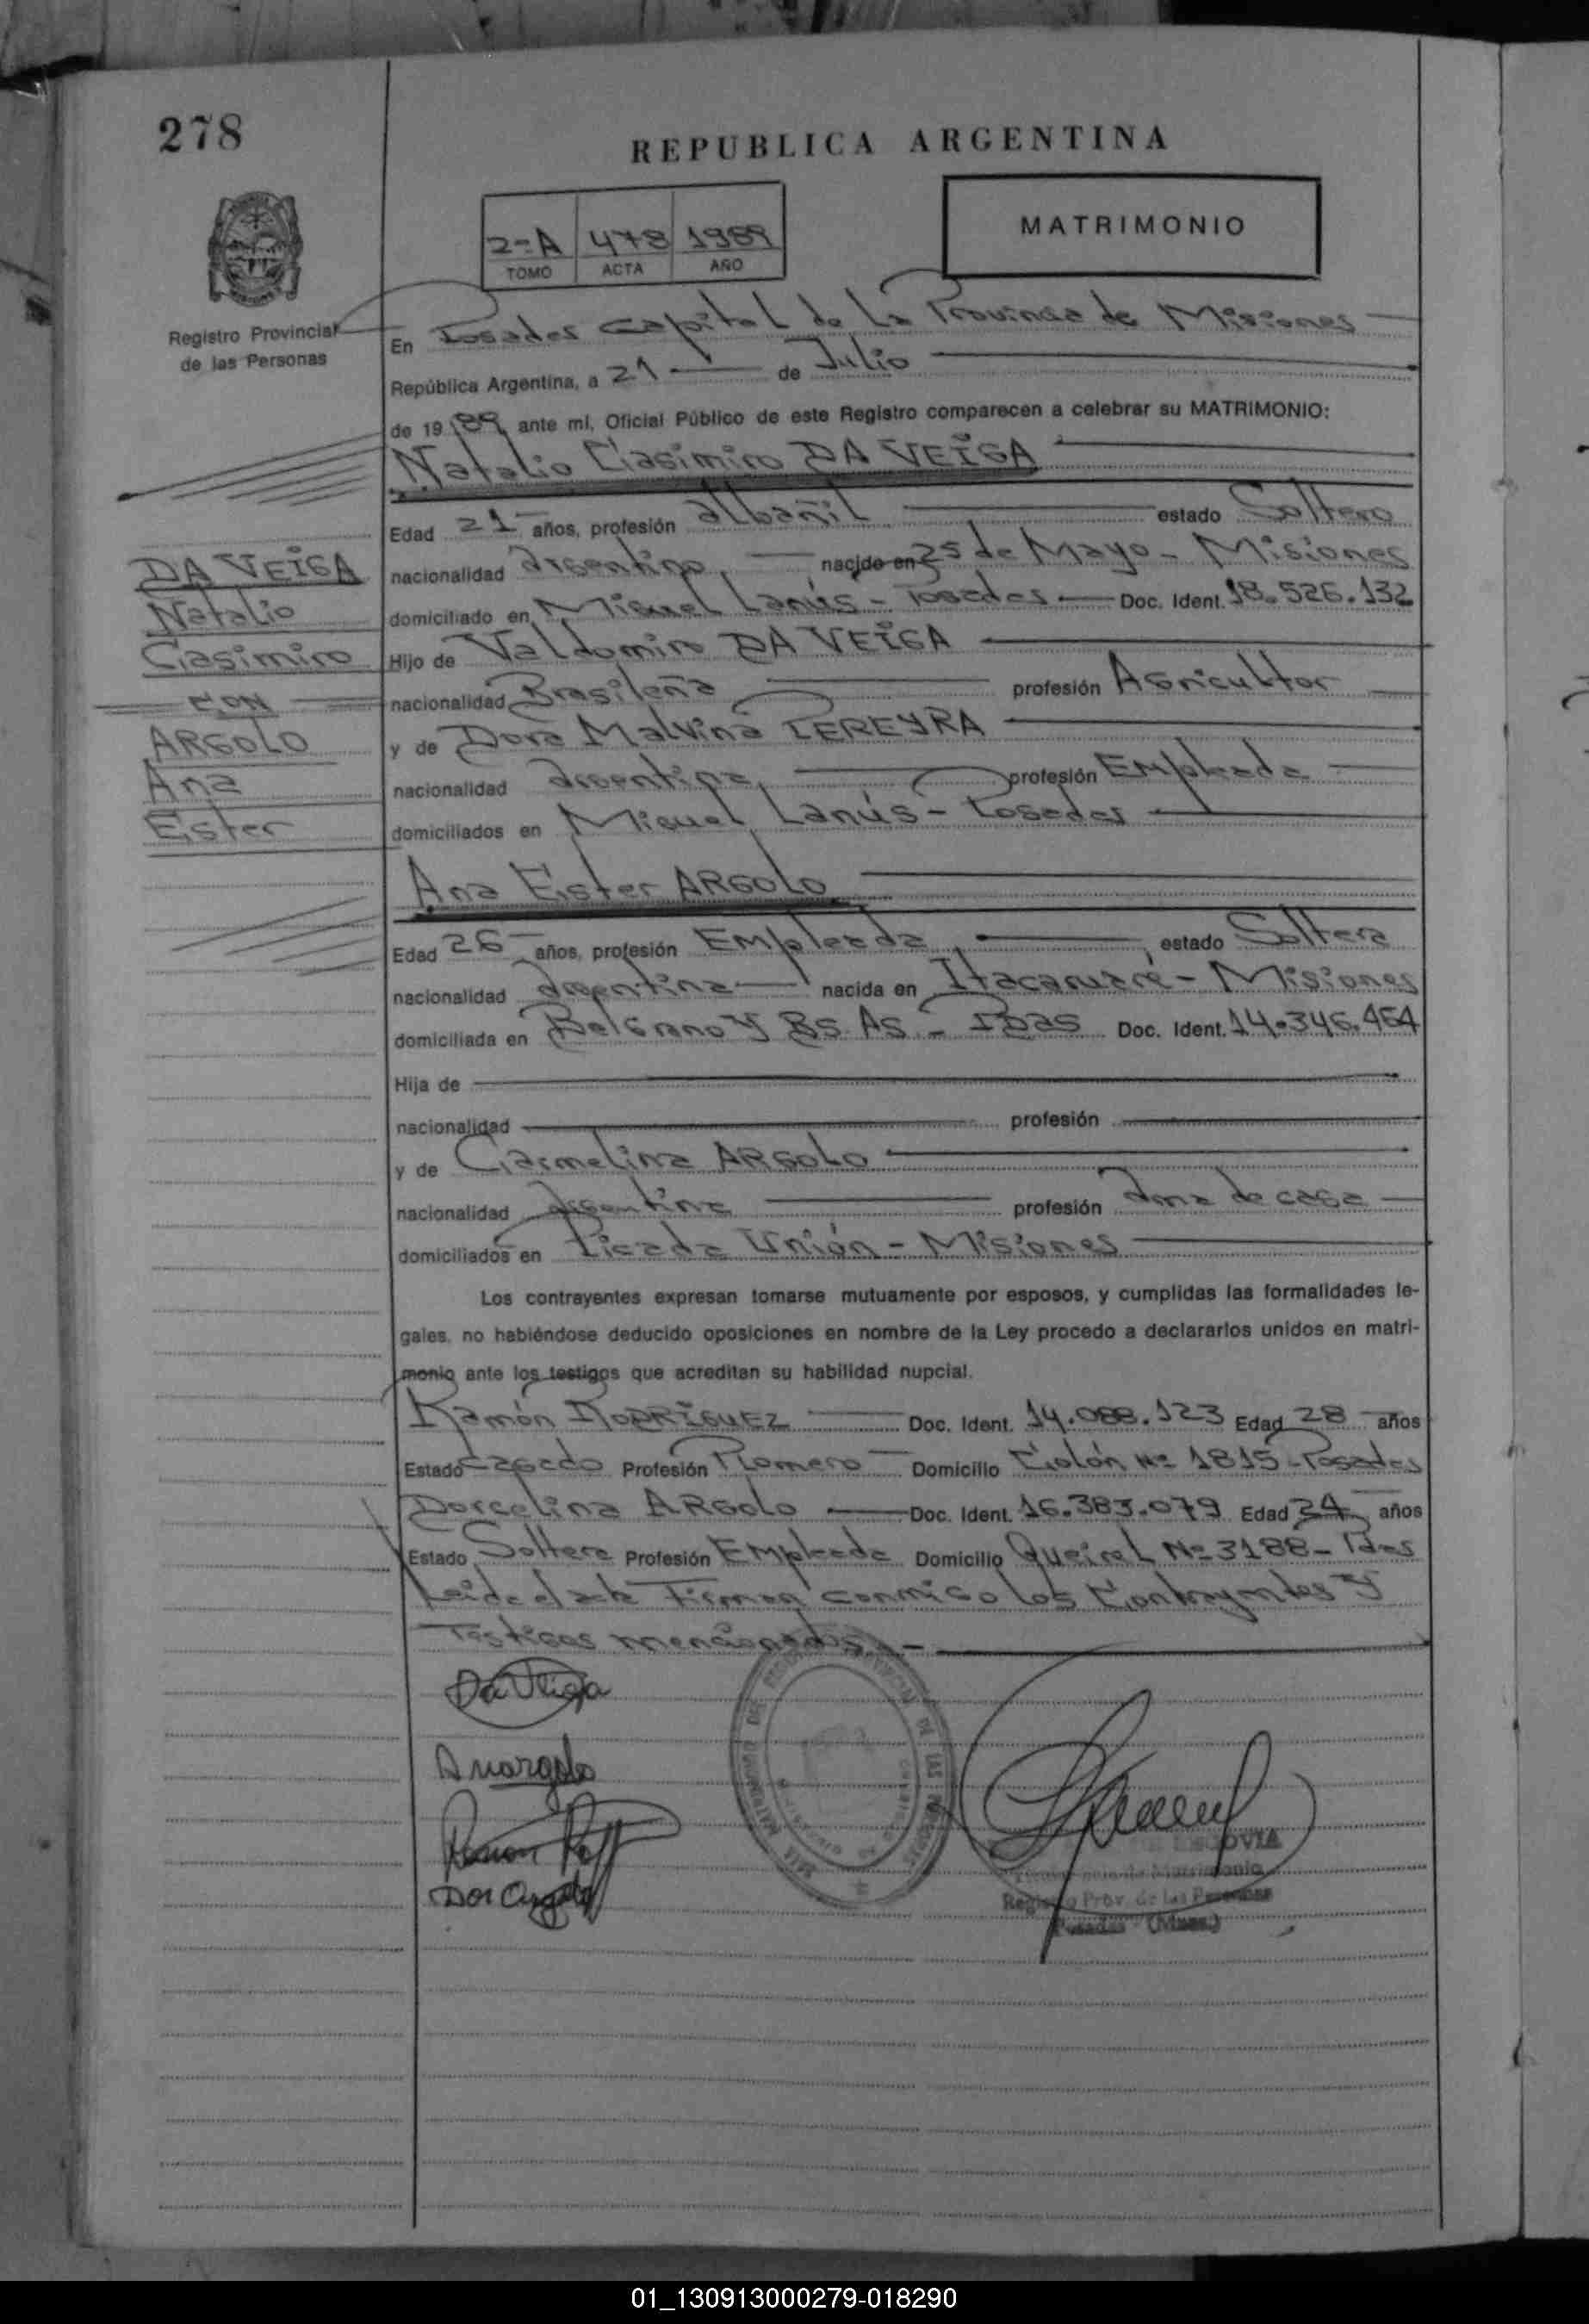 278
REPUBLICA ARGENTINA
2-A 478 1989
TOMO ACTA AÑO
MATRIMONIO
Registro Provincial
de las Personas
En Posadas Capital de La Provincia de Misiones
República Argentina, a 21 de Julio
de 1989, ante mí, Oficial Público de este Registro comparecen a celebrar su MATRIMONIO:
Natalio Casimiro DA VEIGA
Edad 21 años, profesión albañil estado Soltero
nacionalidad argentino nacido en 25 de Mayo - Misiones
domiciliado en Miguel Lanús - Posadas Doc. Ident. 18.526.132
Hijo de Valdomiro DA VEIGA
nacionalidad Brasileña profesión Agricultor
y de Dora Malvina PEREYRA
nacionalidad argentina profesión Empleada
domiciliados en Miguel Lanús - Posadas
DA VEIGA
Natalio
Casimiro
CON
ARGOLO
Ana
Ester
Ana Ester ARGOLO
Edad 26 años, profesión Empleada estado Soltera
nacionalidad argentina nacida en Itacaruaré - Misiones
domiciliada en Belgrano y Bs. As. - Pdas Doc. Ident. 14.346.464
Hija de
nacionalidad profesión
y de Carmelina ARGOLO
nacionalidad argentina profesión ama de casa
domiciliados en Picada Unión - Misiones
Los contrayentes expresan tomarse mutuamente por esposos, y cumplidas las formalidades le-
gales, no habiéndose deducido oposiciones en nombre de la Ley procedo a declararlos unidos en matri-
monio ante los testigos que acreditan su habilidad nupcial.
Ramón RODRIGUEZ Doc. Ident. 14.088.123 Edad 28 años
Estado Casado Profesión Plomero Domicilio Colón Nº 1815 - Posadas
Dorcelina ARGOLO Doc. Ident. 16.383.079 Edad 24 años
Estado Soltera Profesión Empleada Domicilio Queirel Nº 3188 - Pdas
Leida el acta Firman conmigo los Contrayentes y
Testigos mencionados.-
Da Veiga
Anargolo
Ramon
Dor Argolo
Registro Prov. de las Personas
Posadas - (Mnes.)
01_130913000279-018290